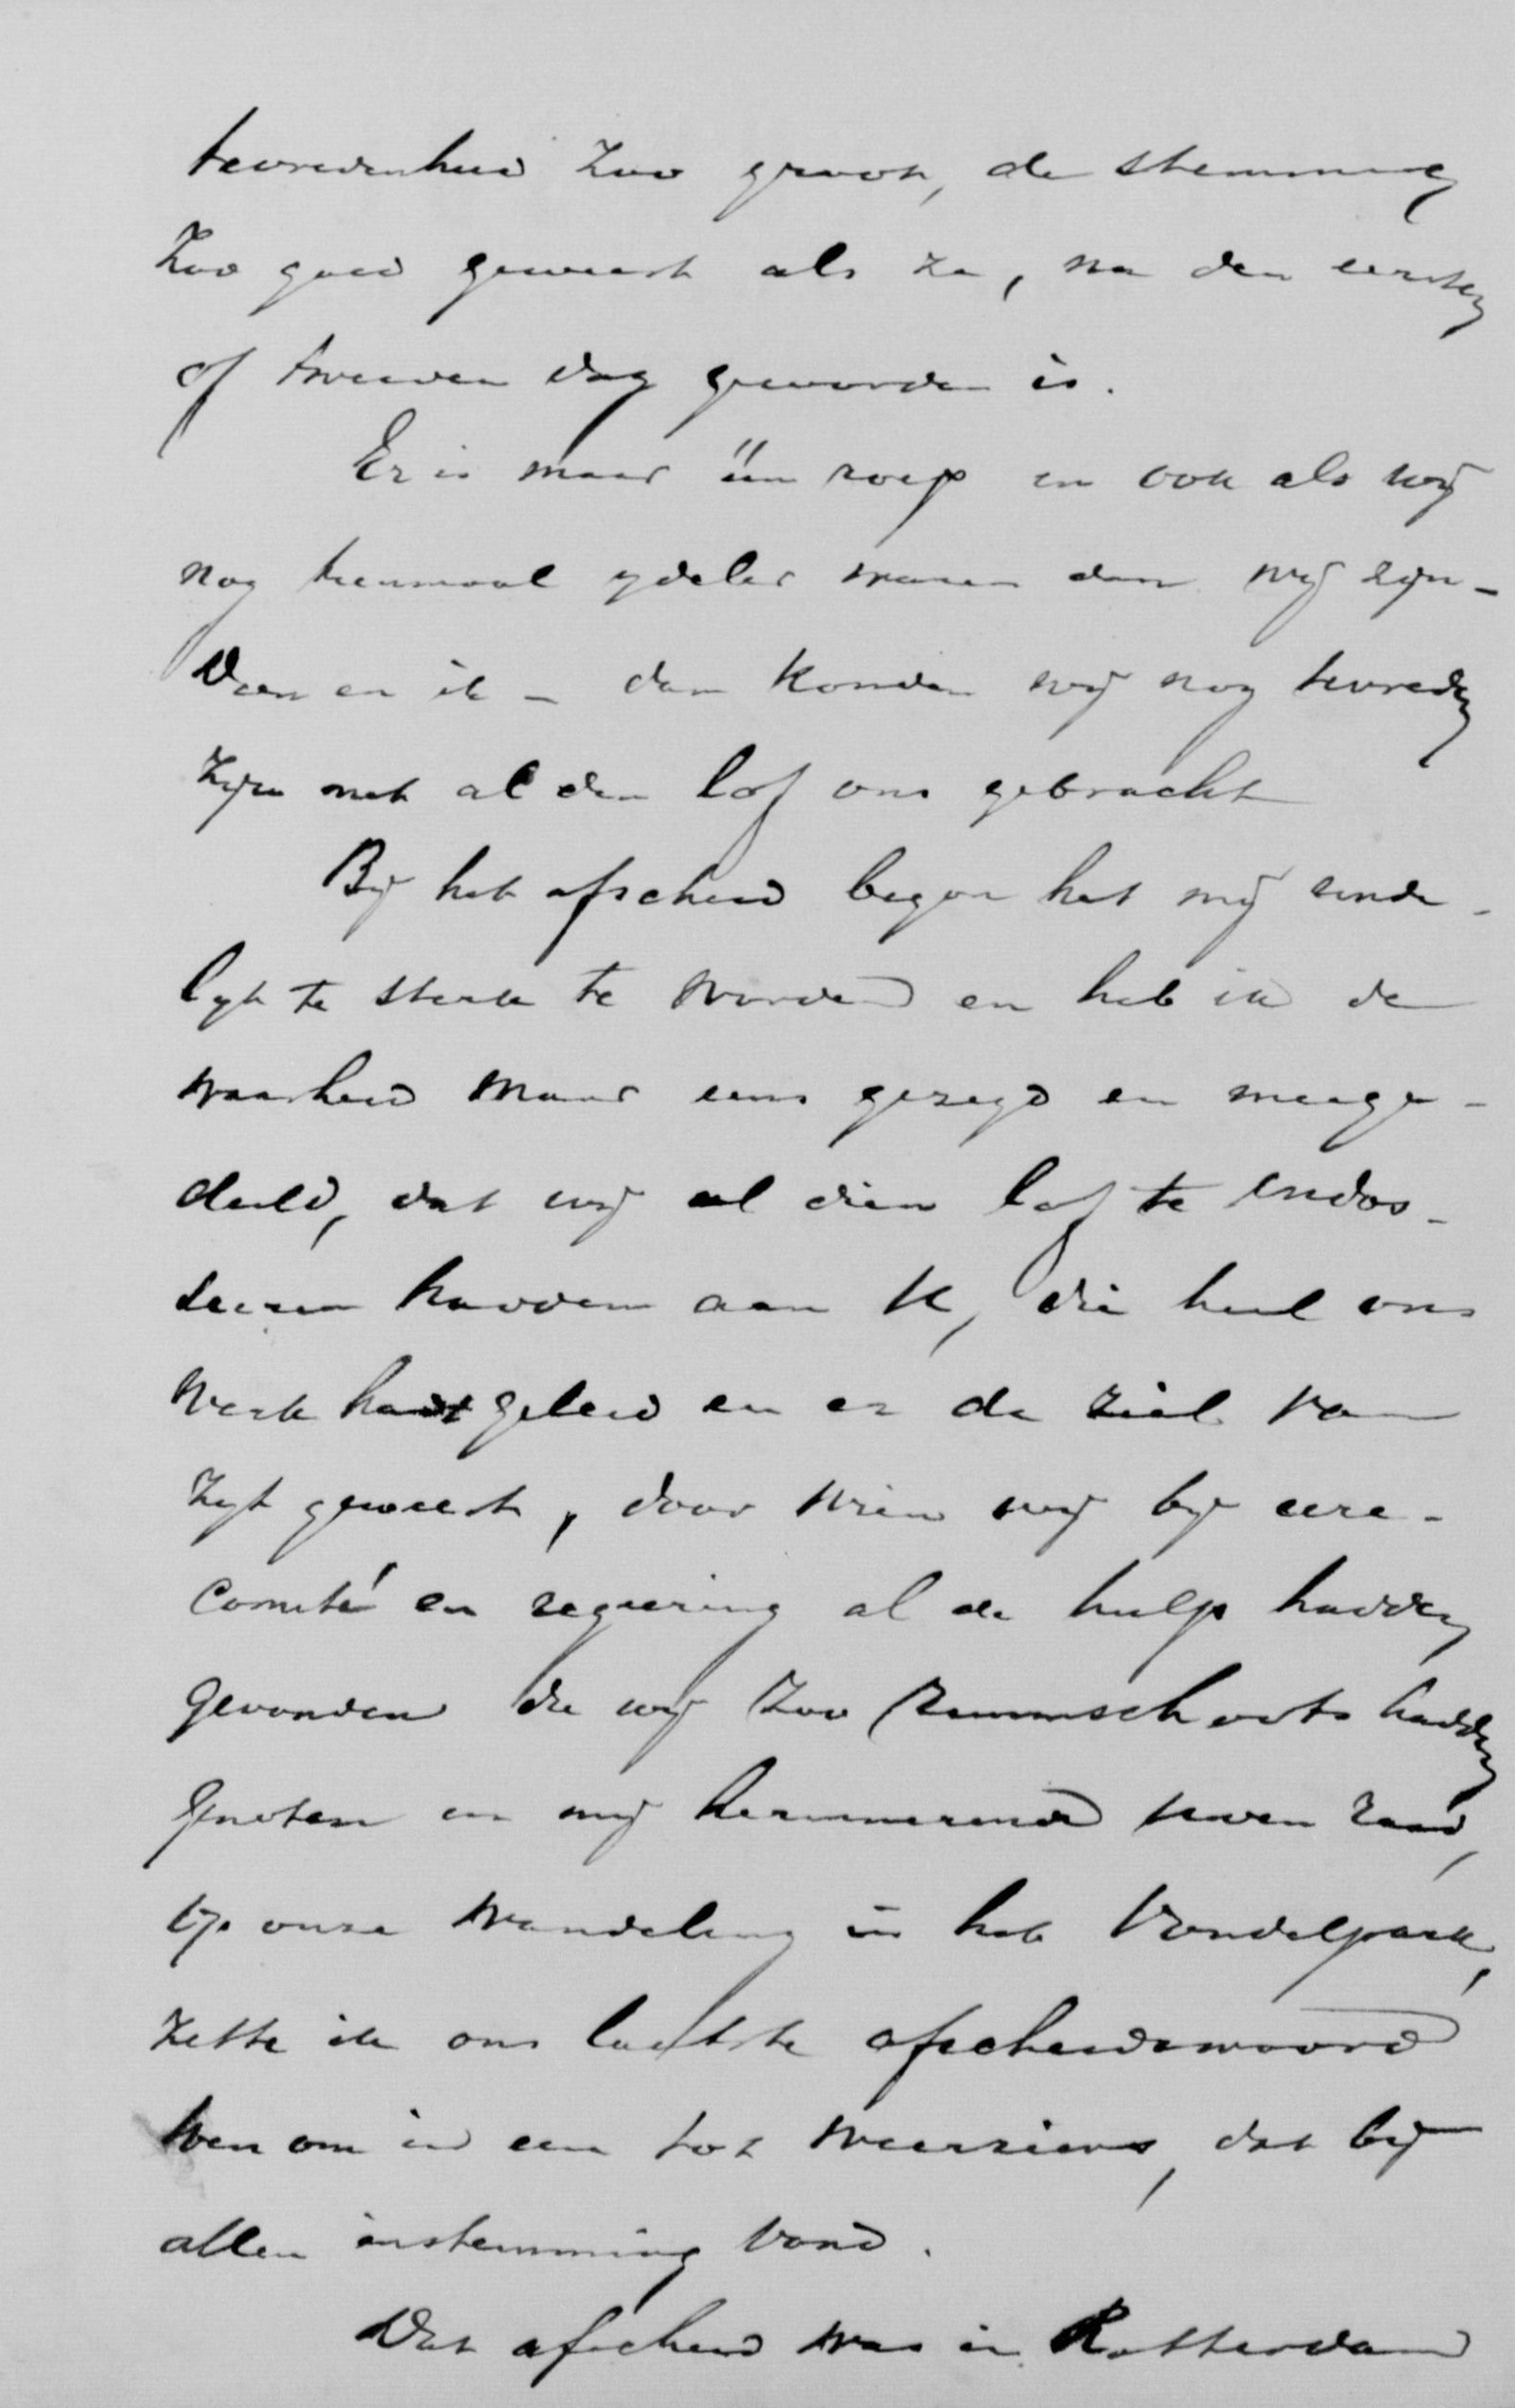 tevredenheid zoo groot, de stemming
zoo goed geweest als ze, na den eersten
of tweeden dag geworden is.
Er is maar één roep en ook als wij
nog tienmaal ydeler waren dan wij zijn -
Daen en ik - dan konden wij nog tevreden
zijn met al den lof ons gebracht
Bij het afscheid begon het mij einde-
lyk te sterk te worden en heb ik de
waarheid maar eens gezegd en meege-
deeld, dat wij al dien lof te endos-
seeren hadden aan U, die heel ons
werk hadt geleid en er de ziel van
zijt geweest, door wien wij bij eere-
comité en regeering al de hulp hadden
gevonden die wij zoo ruimschoots hadden
genoten en mij herinnerend uwen raad,
op onze wandeling in het Vondelpark,
zette ik ons laatste afscheidswoord
om in een tot weerziens, dat bij
allen instemming vond.
Dat afscheid was in Rotterdam